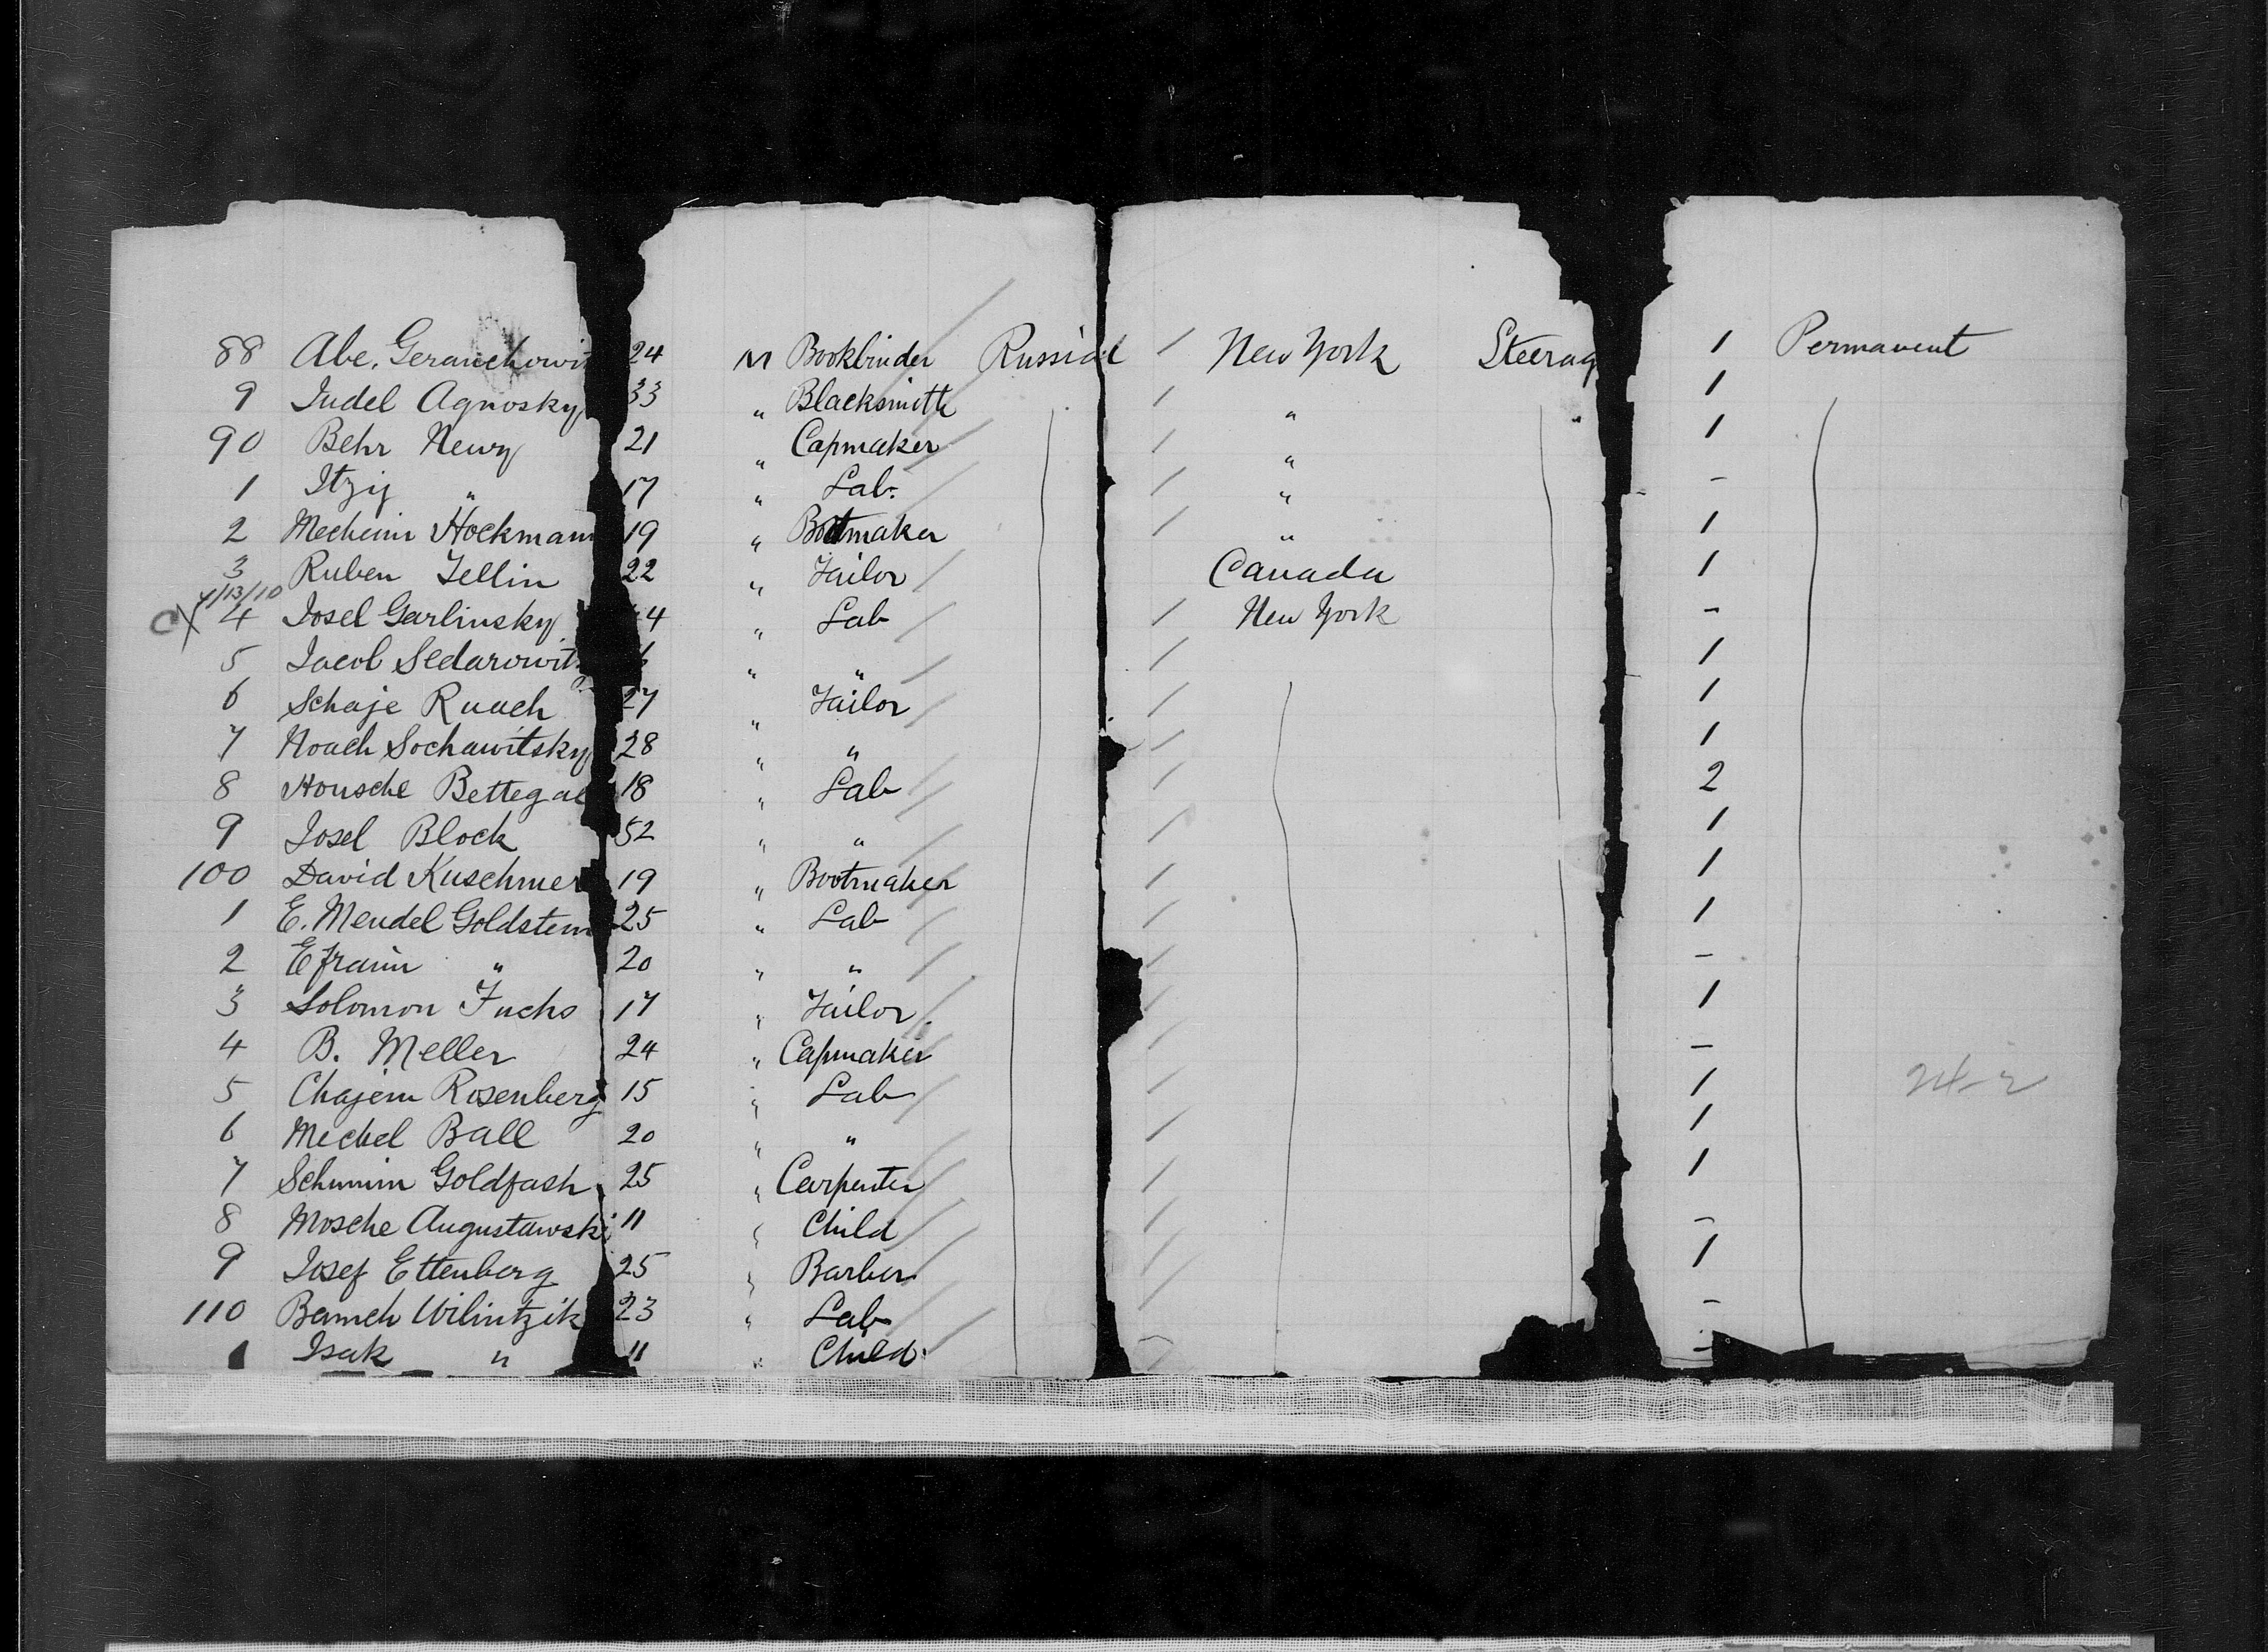 88 Abe. Geranchowit 24 M Bookbinder Russia / New York Steerag 1 Permanent
9 Judel Agnosky 33 " Blacksmith / " 1
90 Behr Newy 21 " Capmaker / " 1
1 Itzig " 17 " Lab. / " -
2 Mecheim Hockmann 19 " Bootmaker / " 1
3 Ruben Jellin 22 " Tailor Canada 1
4/13/10
CX 4 Josel Garlinsky 4 " Lab / New York -
5 Jacob Sedarowitz " " / 1
6 Schaje Ruach 27 " Tailor / 1
7 Noach Sochawitsky 28 " " / 1
8 Housche Bettegal 18 " Lab / 2
9 Josel Block 52 " " / 1
100 David Kuschmer 19 " Bootmaker / 1
1 E. Mendel Goldstein 25 " Lab / 1
2 Efraim " 20 " " / -
3 Solomon Fuchs 17 " Tailor. / 1
4 B. Meller 24 " Capmaker / -
5 Chajem Rosenberg 15 " Lab / 1
6 Mechel Ball 20 " " / 1
7 Schmuin Goldfash 25 " Carpenter / 1
8 Mosche Augustawski 11 " Child / -
9 Josef Ettenberg 25 " Barber / 1
110 Bamch Wilintzik 23 " Lab / -
1 Isak " 11 " Child -